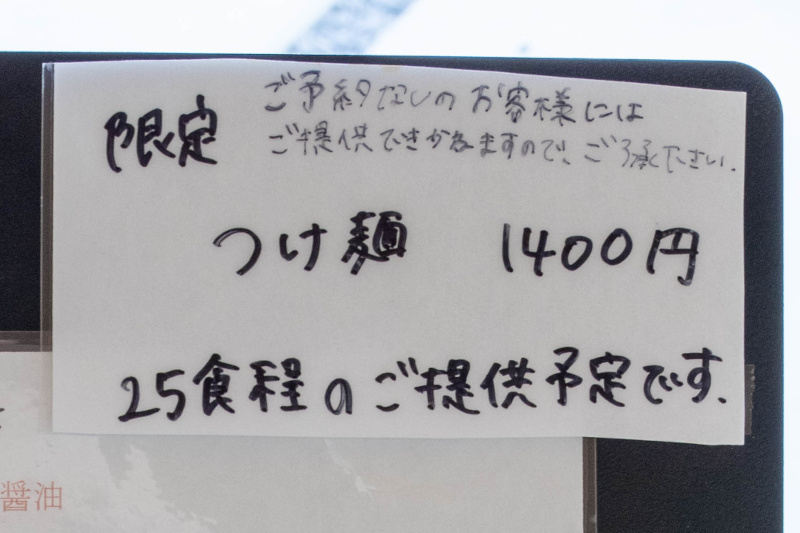 限定
ご予約なしのお客様には
ご提供できかねますので、ご了承下さい.
つけ麺 1400円
25食程のご提供予定です.
醤油